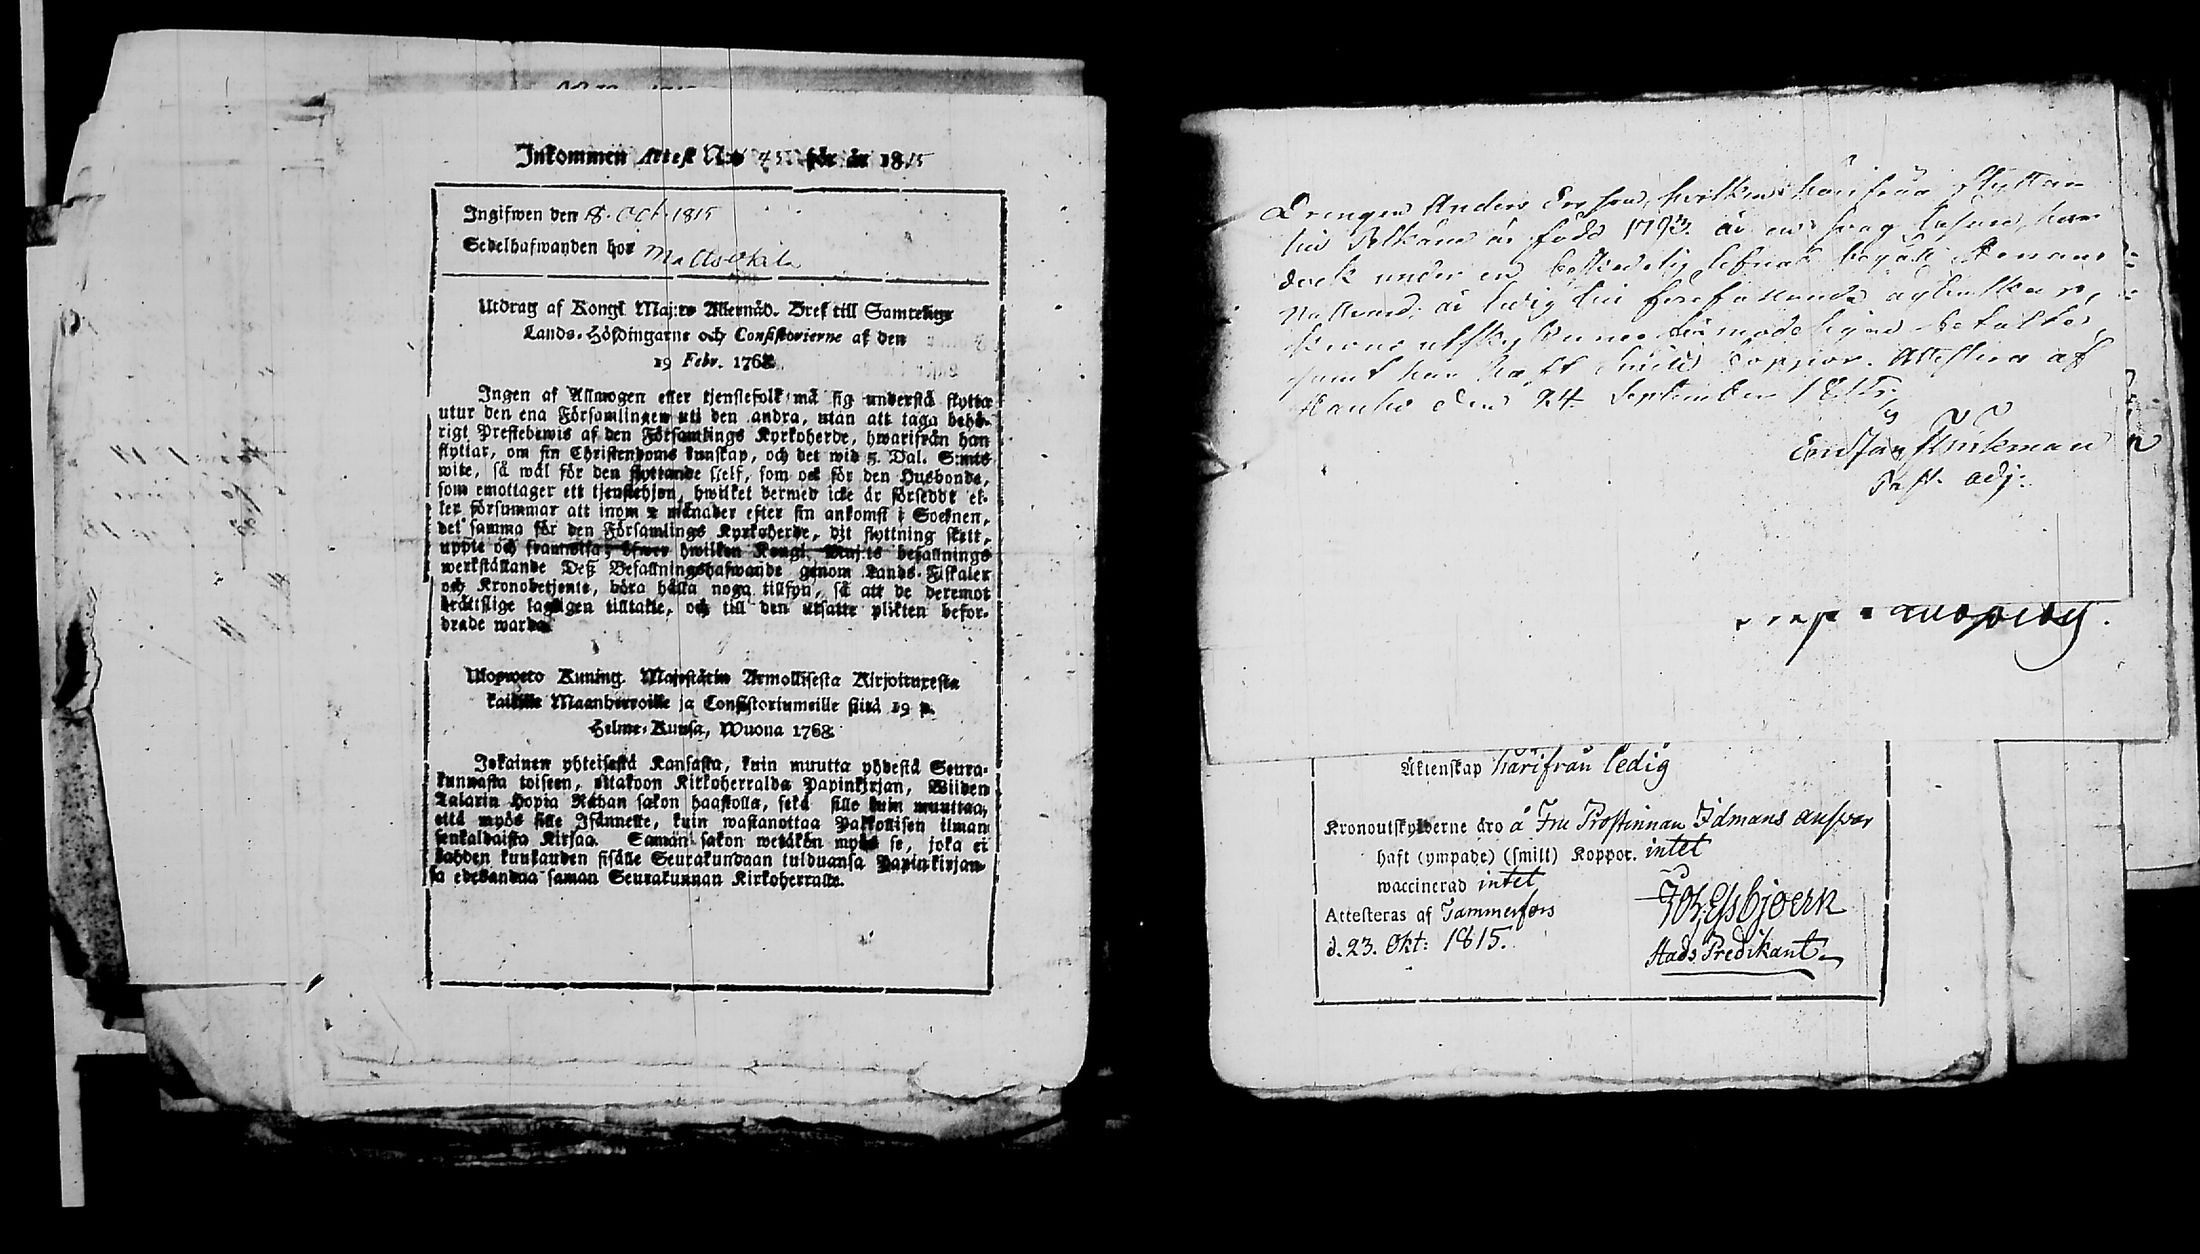 Inkommen Attest N:o 45 för år 1815
Ingifwen den 18. Oct. 1815
Sedelhafwanden hor Matts
Utdrag af Kongl Maj:ts Allernåd. Bref till Samtelige
Lands-Höfdingarne och Consistorierne af den
19 Febr. 1768.
Ingen af Allmogen eller tjenstefolk må sig understå flytta
utur den ena Församlingen uti den andra, utan att taga behö-
rigt Prestebewis af den Församlings Kyrkoherde, hwarifrån han
flyttar, om sin Christendoms kunskap, och det wid 5. Dal. S:mts
wite, så wäl för den flyttande sjelf, som ock för den Husbonde,
som emottager ett tjenstehjon, hwilket dermed icke är försedt el-
ler försummar att inom 2 månader efter sin ankomst i Socknen,
det samma för den Församlings Kyrkoherde, dit flyttning skett,
uppte och framwisa; öfwer hwilken Kongl. Maj:ts befallnings
werkställande Deß Befallningshafwande genom Lands-Fiskaler
och Kronobetjente, böra hålla noga tillsyn, så att de deremot
brättslige lagligen tilltalte, och till den utsatte plikten befor-
drade warda.
Ulosweto Kuning. Majestätin Armollisesta Kirjoituxesta
kaikille Maanherroille ja Consistoriumeille siitä 19 p.
Helme-Kuusa, Wuona 1768.
Jokainen yhteisestä Kansasta, kuin muutta yhdestä Seura-
kunnasta toiseen, ottakoon Kirkoherralda Papinkirjan, Wiiden
Talarin Hopia Rahan sakon haastolla, sekä sille kuin muuttaa,
että myös sille Isännelle, kuin wastanottaa Palkollisen ilman
senkaldaista Kirjaa. Saman sakon wetäkön myös se, joka ei
kahden kuukauden sisälle Seurakundaan tulduansa Papinkirjan-
sa edesanna saman Seurakunnan Kirkoherralle.
Drengen Anders Ersson, hvilken härifrån flyttar
till Pelkäne är född 1793. är en svag läsare, har
dock under en beskedelig lefnad begått Herrans
Nattvard; är ledig till förefallande ägtenskap,
Krono utskylderne till modeligen betalte,
samt har haft koppor. Attesteras af
Hauho den 24. September 1815.
Past. adj.
Äktenskap härifrån ledig
Kronoutskylderne äro å Fru Prostinnan Idmans answar
haft (ympade) (smitt) Koppor. intet
waccinerad intet
Attesteras af Tammerfors
d. 23. Okt: 1815.
Joh. Essbjoerk
Stads Predikant.